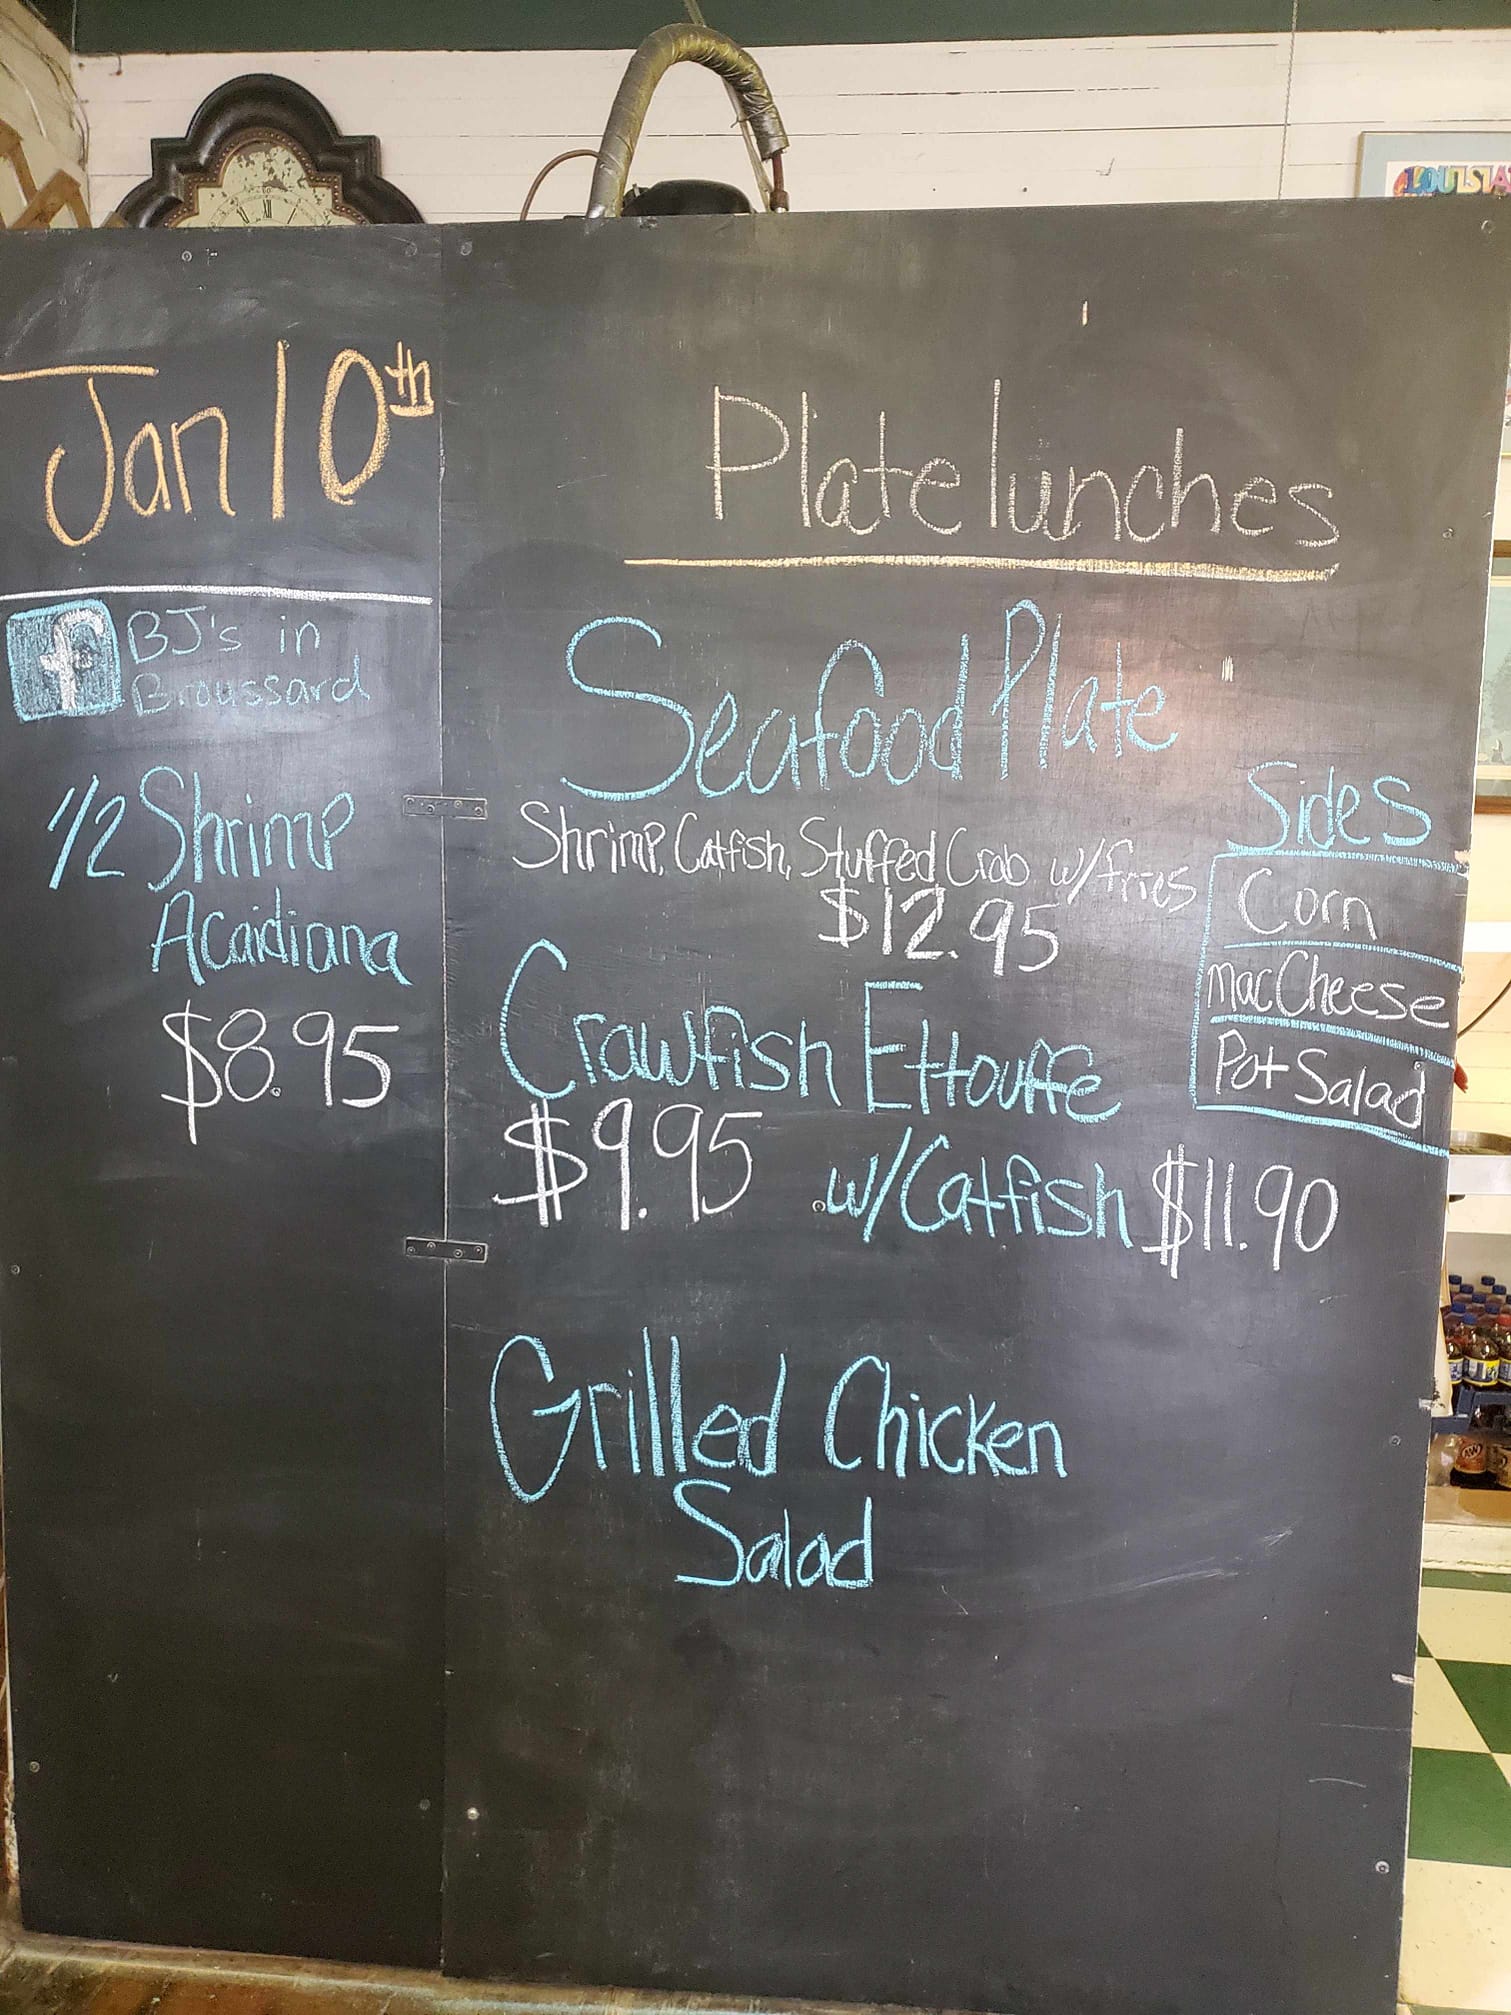 Jan 10th
f BJ's in
Broussard
1/2 Shrimp
Acaidiana
$8.95
Plate lunches
Seafood Plate
Shrimp, Catfish, Stuffed Crab w/fries
$12.95
Crawfish Ettouffe
$9.95 w/Catfish $11.90
Grilled Chicken
Salad
Sides
Corn
Mac Cheese
Pot Salad